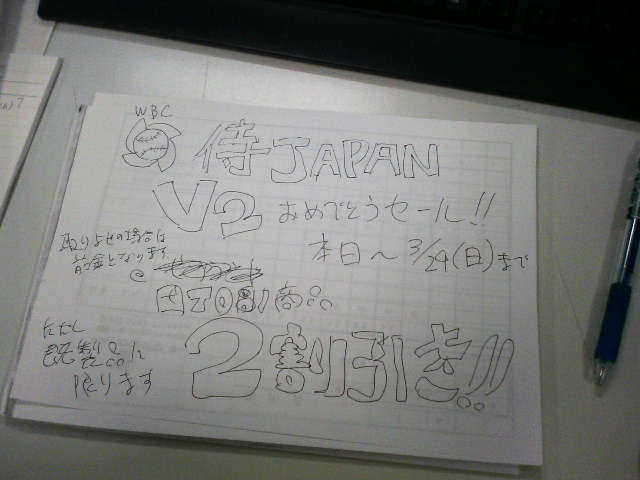 WBC
侍JAPAN
V2 おめでとうセール!!
本日〜3/29(日)まで
取りよせの場合は
前金となります
商品
2割引き!!
ただし
既製品に
限ります